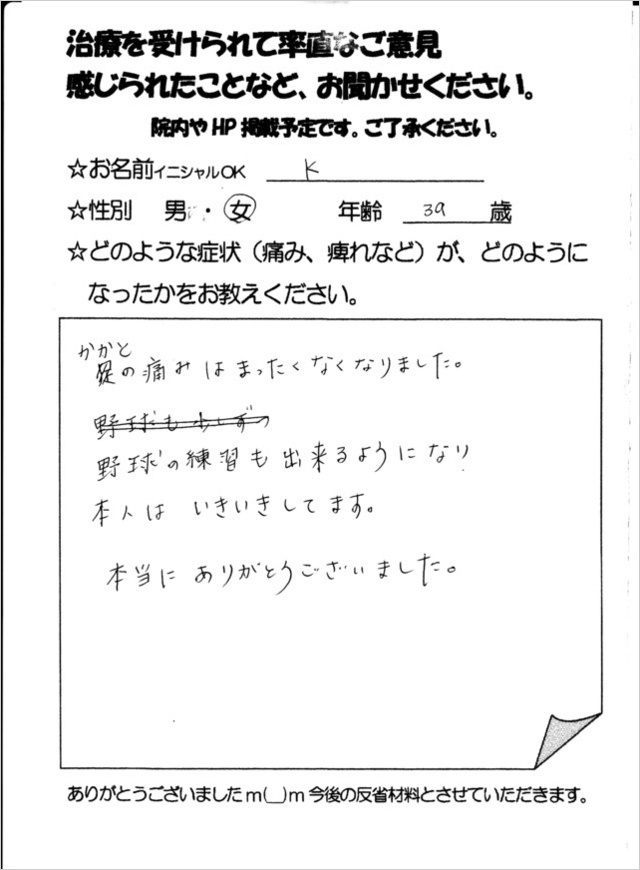 治療を受けられて率直なご意見
感じられたことなど、お聞かせください。
院内やHP掲載予定です。ご了承ください。
☆お名前イニシャルOK K
☆性別 男・女 年齢 39 歳
☆どのような症状（痛み、痺れなど）が、どのように
なったかをお教えください。
かかと
踵の痛みはまったくなくなりました。
野球も少しずつ
野球の練習も出来るようになり
本人は いきいきしてます。
本当に ありがとうございました。
ありがとうございましたm(__)m今後の反省材料とさせていただきます。